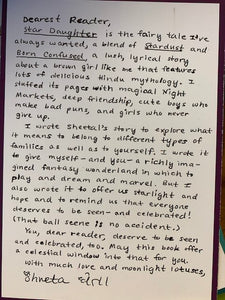 Dearest Reader,
Star Daughter is the fairy tale I've
always wanted, a blend of Stardust and
Born Confused, a lush, lyrical story
about a brown girl like me that features
lots of delicious Hindu mythology. I
stuffed its pages with magical Night
Markets, deep friendship, cute boys who
make bad puns, and girls who never
give up.
I wrote Sheetal's story to explore what
it means to belong to different types of
families as well as to yourself. I wrote it
to give myself-and you-a richly ima-
gined fantasy wonderland in which to
play and dream and marvel. But I
also wrote it to offer us starlight and
hope and to remind us that everyone
deserves to be seen-and celebrated!
(That ball scene is no accident.)
You, dear reader, deserve to be seen
and celebrated, too. May this book offer
a celestial window into that for you.
With much love and moonlight lotuses,
Shveta